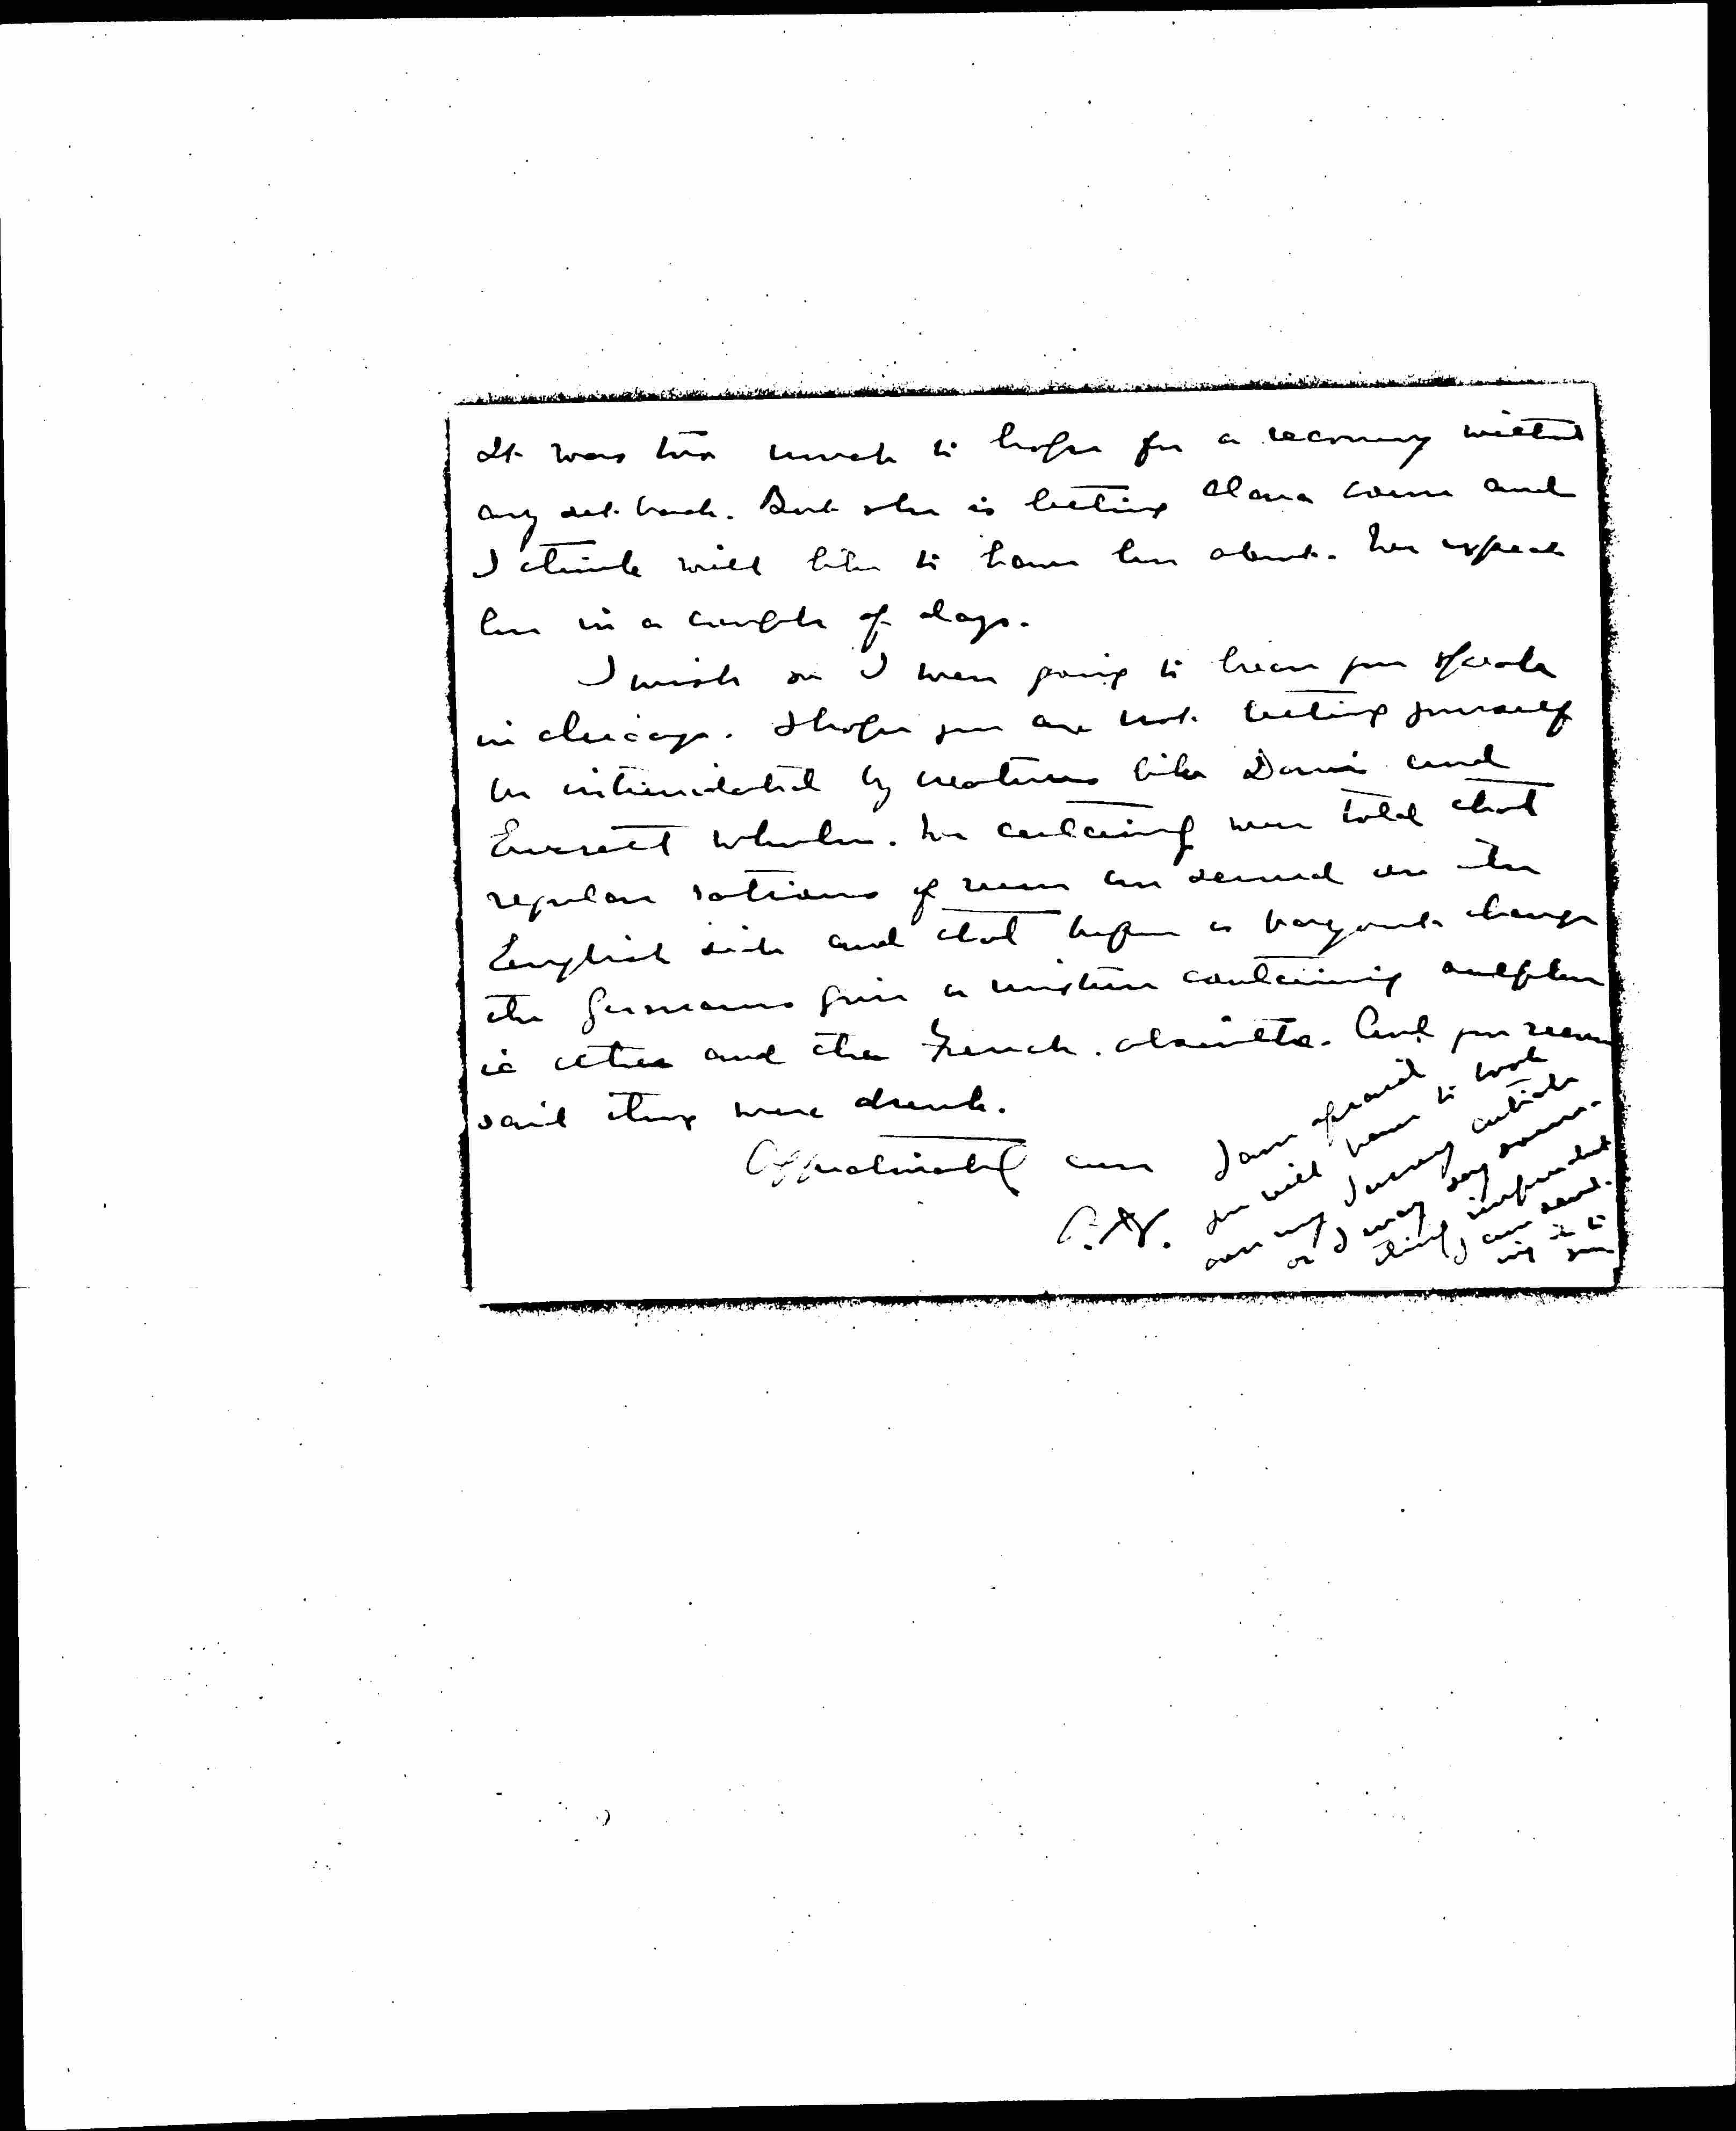 It was too much to hope for a recovery without
any set back. But she is letting Clara come and
I think will like to have her about. We expect
her in a couple of days.
I wish so I were going to hear you speak
in Chicago. I hope you are not letting yourself
be intimidated by creatures like Davis and
Everett Wheeler. We certainly were told that
regular rations of rum are served on the
English side and that before a bayonet charge
the Germans give a mixture containing sulphur
ic ether and the French. absinthe. And you never
said they were drunk.
Affectionately ever
A.H.
I am afraid
you will have to look
over my Survey article
or I may say some-
thing imprudent
I am send-
ing it to
you